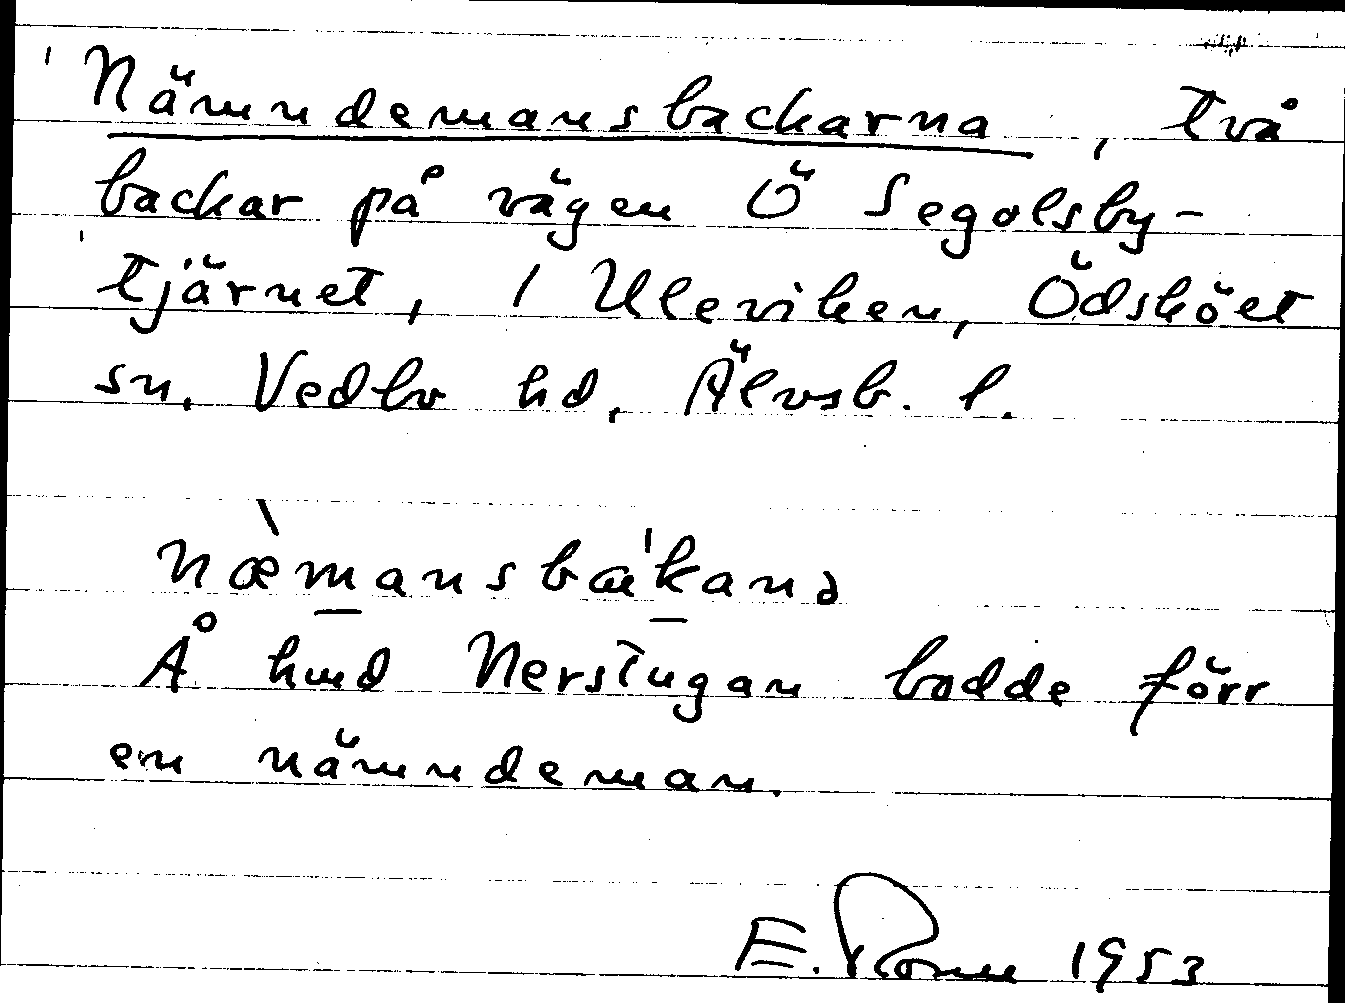 Nämndemansbackarna, två
backar på vägen Ö Segolsby-
tjärnet, / Uleviken, Ödsköet
sn. Vedbo hd, Älvsb. l.
næ̀m̲ansbæ'k̲anə
Å hmd Nerstugan bodde förr
en nämndeman.
E. Rome 1953